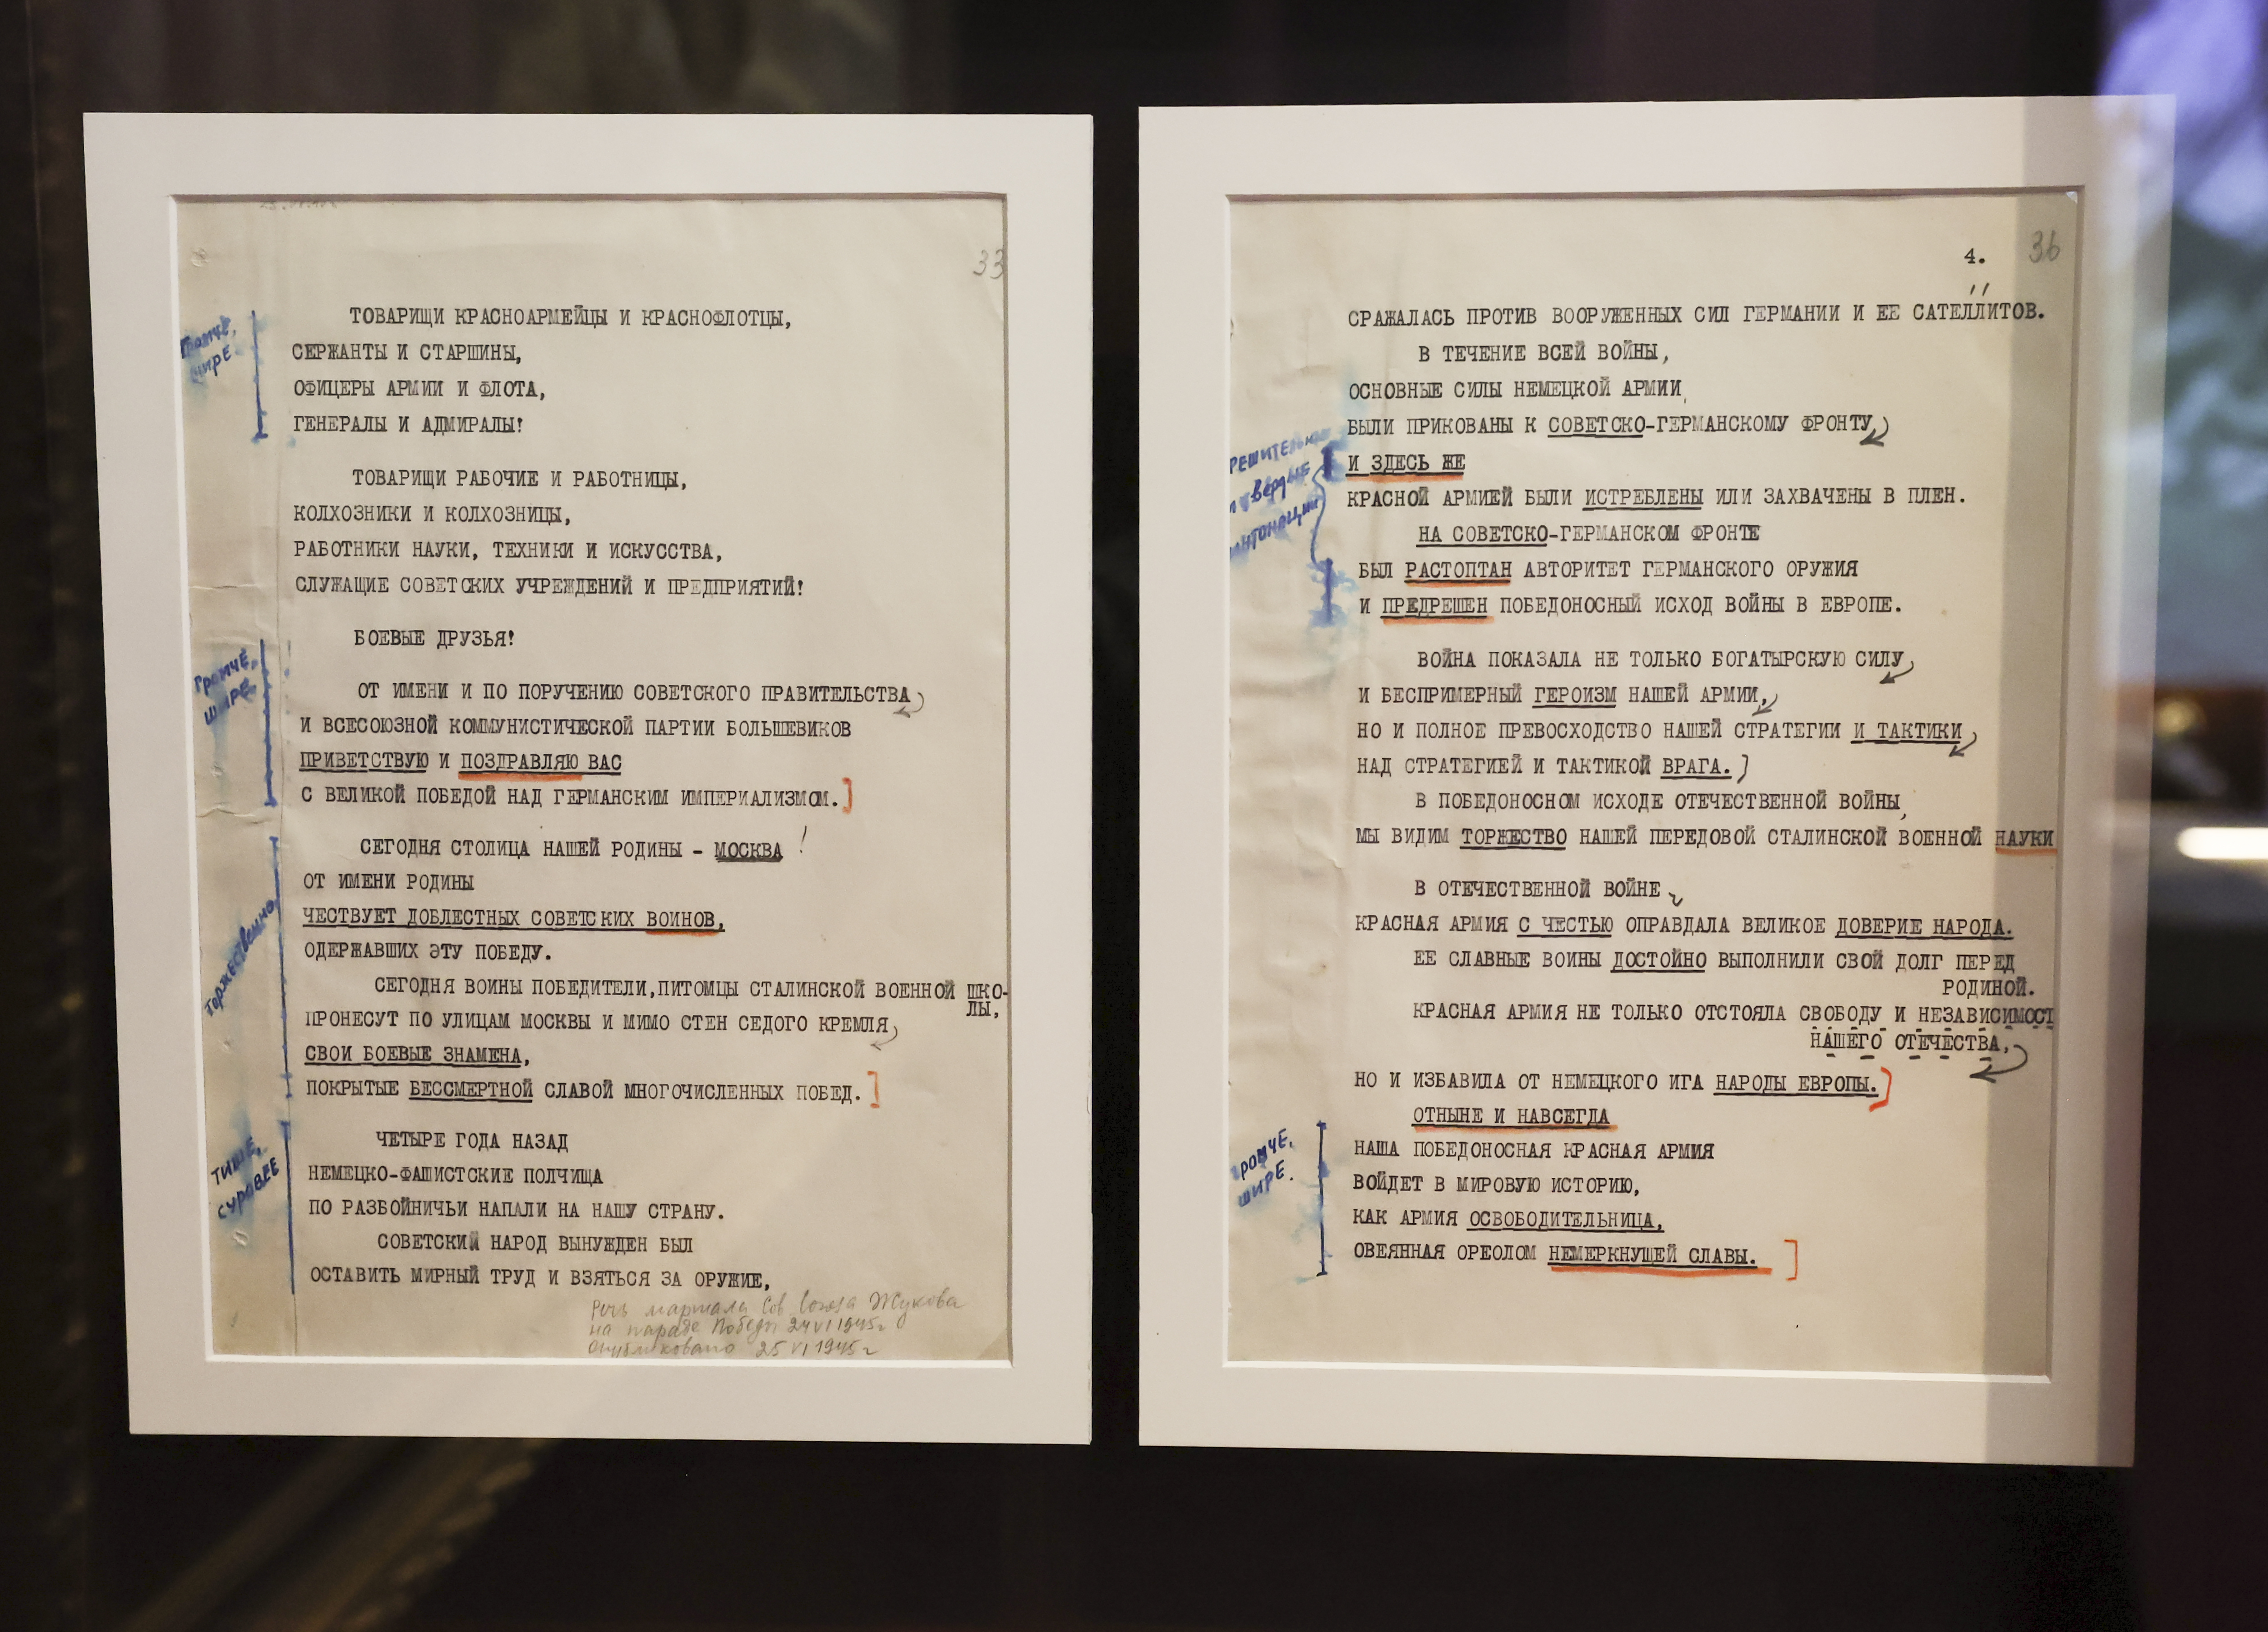 33
ТОВАРИЩИ КРАСНОАРМЕЙЦЫ И КРАСНОФЛОТЦЫ,
СЕРЖАНТЫ И СТАРШИНЫ,
ОФИЦЕРЫ АРМИИ И ФЛОТА,
ГЕНЕРАЛЫ И АДМИРАЛЫ!
Громче,
шире.
ТОВАРИЩИ РАБОЧИЕ И РАБОТНИЦЫ,
КОЛХОЗНИКИ И КОЛХОЗНИЦЫ,
РАБОТНИКИ НАУКИ, ТЕХНИКИ И ИСКУССТВА,
СЛУЖАЩИЕ СОВЕТСКИХ УЧРЕЖДЕНИЙ И ПРЕДПРИЯТИЙ!
БОЕВЫЕ ДРУЗЬЯ!
Громче,
шире.
ОТ ИМЕНИ И ПО ПОРУЧЕНИЮ СОВЕТСКОГО ПРАВИТЕЛЬСТВА
И ВСЕСОЮЗНОЙ КОММУНИСТИЧЕСКОЙ ПАРТИИ БОЛЬШЕВИКОВ
ПРИВЕТСТВУЮ И ПОЗДРАВЛЯЮ ВАС
С ВЕЛИКОЙ ПОБЕДОЙ НАД ГЕРМАНСКИМ ИМПЕРИАЛИЗМОМ.]
СЕГОДНЯ СТОЛИЦА НАШЕЙ РОДИНЫ - МОСКВА !
ОТ ИМЕНИ РОДИНЫ
ЧЕСТВУЕТ ДОБЛЕСТНЫХ СОВЕТСКИХ ВОИНОВ,
ОДЕРЖАВШИХ ЭТУ ПОБЕДУ.
Торжественно
СЕГОДНЯ ВОИНЫ ПОБЕДИТЕЛИ,ПИТОМЦЫ СТАЛИНСКОЙ ВОЕННОЙ ШКО-
ЛЫ,
ПРОНЕСУТ ПО УЛИЦАМ МОСКВЫ И МИМО СТЕН СЕДОГО КРЕМЛЯ
СВОИ БОЕВЫЕ ЗНАМЕНА,
ПОКРЫТЫЕ БЕССМЕРТНОЙ СЛАВОЙ МНОГОЧИСЛЕННЫХ ПОБЕД.]
Тише,
суровее
ЧЕТЫРЕ ГОДА НАЗАД
НЕМЕЦКО-ФАШИСТСКИЕ ПОЛЧИЩА
ПО РАЗБОЙНИЧЬИ НАПАЛИ НА НАШУ СТРАНУ.
СОВЕТСКИЙ НАРОД ВЫНУЖДЕН БЫЛ
ОСТАВИТЬ МИРНЫЙ ТРУД И ВЗЯТЬСЯ ЗА ОРУЖИЕ,
Речь маршала Сов Союза Жукова
на параде Победы 24 VI 1945г
Опубликовано 25 VI 1945г
4. 36
СРАЖАЛАСЬ ПРОТИВ ВООРУЖЕННЫХ СИЛ ГЕРМАНИИ И ЕЕ САТЕЛЛИТОВ.
В ТЕЧЕНИЕ ВСЕЙ ВОЙНЫ,
ОСНОВНЫЕ СИЛЫ НЕМЕЦКОЙ АРМИИ,
БЫЛИ ПРИКОВАНЫ К СОВЕТСКО-ГЕРМАНСКОМУ ФРОНТУ
И ЗДЕСЬ ЖЕ
КРАСНОЙ АРМИЕЙ БЫЛИ ИСТРЕБЛЕНЫ ИЛИ ЗАХВАЧЕНЫ В ПЛЕН.
НА СОВЕТСКО-ГЕРМАНСКОМ ФРОНТЕ
БЫЛ РАСТОПТАН АВТОРИТЕТ ГЕРМАНСКОГО ОРУЖИЯ
И ПРЕДРЕШЕН ПОБЕДОНОСНЫЙ ИСХОД ВОЙНЫ В ЕВРОПЕ.
ВОЙНА ПОКАЗАЛА НЕ ТОЛЬКО БОГАТЫРСКУЮ СИЛУ
И БЕСПРИМЕРНЫЙ ГЕРОИЗМ НАШЕЙ АРМИИ,
НО И ПОЛНОЕ ПРЕВОСХОДСТВО НАШЕЙ СТРАТЕГИИ И ТАКТИКИ
НАД СТРАТЕГИЕЙ И ТАКТИКОЙ ВРАГА.
В ПОБЕДОНОСНОМ ИСХОДЕ ОТЕЧЕСТВЕННОЙ ВОЙНЫ,
МЫ ВИДИМ ТОРЖЕСТВО НАШЕЙ ПЕРЕДОВОЙ СТАЛИНСКОЙ ВОЕННОЙ НАУКИ
В ОТЕЧЕСТВЕННОЙ ВОЙНЕ
КРАСНАЯ АРМИЯ С ЧЕСТЬЮ ОПРАВДАЛА ВЕЛИКОЕ ДОВЕРИЕ НАРОДА.
ЕЕ СЛАВНЫЕ ВОИНЫ ДОСТОЙНО ВЫПОЛНИЛИ СВОЙ ДОЛГ ПЕРЕД
РОДИНОЙ.
КРАСНАЯ АРМИЯ НЕ ТОЛЬКО ОТСТОЯЛА СВОБОДУ И НЕЗАВИСИМОСТ
НАШЕГО ОТЕЧЕСТВА,
НО И ИЗБАВИЛА ОТ НЕМЕЦКОГО ИГА НАРОДЫ ЕВРОПЫ.]
ОТНЫНЕ И НАВСЕГДА
Громче,
шире.
НАША ПОБЕДОНОСНАЯ КРАСНАЯ АРМИЯ
ВОЙДЕТ В МИРОВУЮ ИСТОРИЮ,
КАК АРМИЯ ОСВОБОДИТЕЛЬНИЦА,
ОВЕЯННАЯ ОРЕОЛОМ НЕМЕРКНУЩЕЙ СЛАВЫ. ]